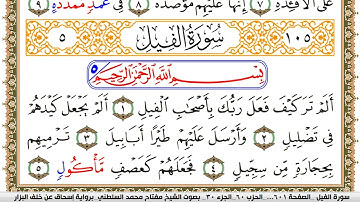 عَلَى الْأَفْئِدَةِ ٧ إِنَّهَا عَلَيْهِم مُّوصَدَةٌ ٨ فِي عَمَدٍ مُّمَدَّدَةٍ ٩
٥ سُورَةُ الْفِيلِ ١٠٥
بِسْمِ اللَّهِ الرَّحْمَٰنِ الرَّحِيمِ
أَلَمْ تَرَ كَيْفَ فَعَلَ رَبُّكَ بِأَصْحَابِ الْفِيلِ ١ أَلَمْ يَجْعَلْ كَيْدَهُمْ
فِي تَضْلِيلٍ ٢ وَأَرْسَلَ عَلَيْهِمْ طَيْرًا أَبَابِيلَ ٣ تَرْمِيهِم
بِحِجَارَةٍ مِّن سِجِّيلٍ ٤ فَجَعَلَهُمْ كَعَصْفٍ مَّأْكُولٍ ٥
سورة الفيل الصفحة ٦٠١... الحزب ٦٠ الجزء ٣٠ بصوت الشيخ مفتاح محمد السلطني برواية إسحاق عن خلف البزار